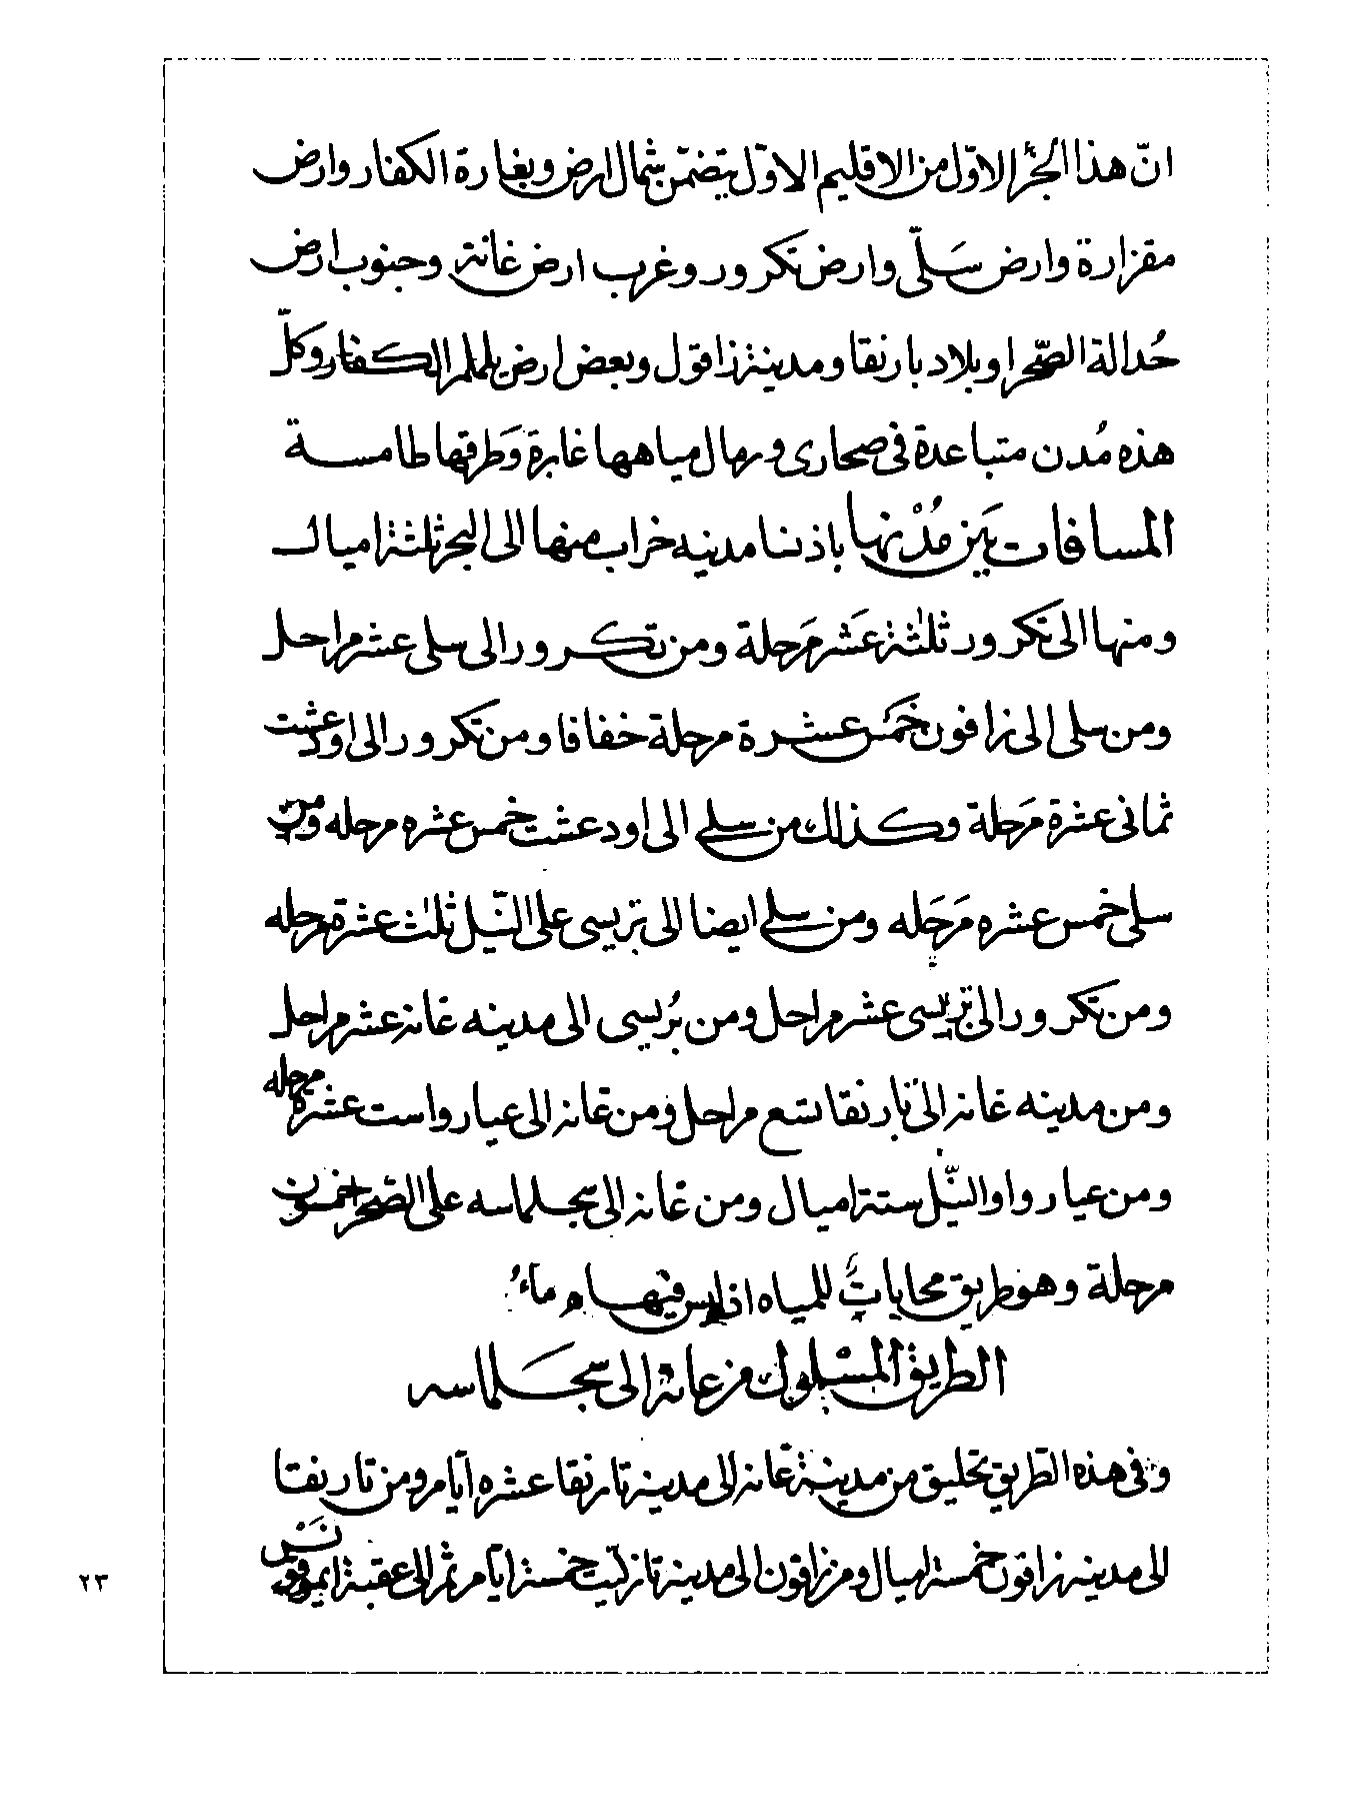 انّ هذا الجزٔ الاوّل من الاقليم الاوّل يتضمّن شمال ارض وبغارة الكفار وارض
مقزارة وارض سَلّى وارض تكرور وغرب ارض غانة وجنوب ارض
حُدالة الصّحرا وبلاد بارنقا ومدينة زاقول وبعض ارض يلملم الكفار وكلّ
هذه مُدن متباعدة فى صحارى ورمال مياهها غايرة وَطرقها طامسة
المسافات بَين مُدْنها باذننا مدينه خراب منها الى البحر ثلثة اميال
ومنها الى تكرور ثلٰثة عَشر مَرحلة ومن تكرور الى سلى عشر مراحل
ومن سلى الى زافون خمَس عشرة مرحلة خفافا ومن تكرور الى اودعشت
ثمانى عشرة مَرحلة وكذلك من سلى الى اودعشت خمس عشره مرحله ومن
سلى خمس عشره مَرحَله ومن سلى ايضا الى تريسى على النّيل ثلٰث عشرة مرحله
ومن تكرور الى تريسى عشر مراحل ومن بُريسى الى مدينه غانه عشر مراحل
ومن مدينه غانه الى تارنقا تسع مراحل ومن غانه الى عيارو است عشرة مرحله
ومن عيارو او النيّل ستة اميال ومن غانه الى سجلماسه على الصّحرا خمسون
مرحلة وهو طريق محابات للمياه اذ ليس فيها م ماءُ
الطريق المسْلوك من غانة الى سجلماسه
وفى هذه الطّريق تحليق من مدينة غانه الى مدينه تارنقا عشره ايّام ومن تارنقا
الى مدينه زافون خمسة اميال ومن زافون الى مدينه تازكيت خمسة ايّام ثمّ الى عقبة
٢٣